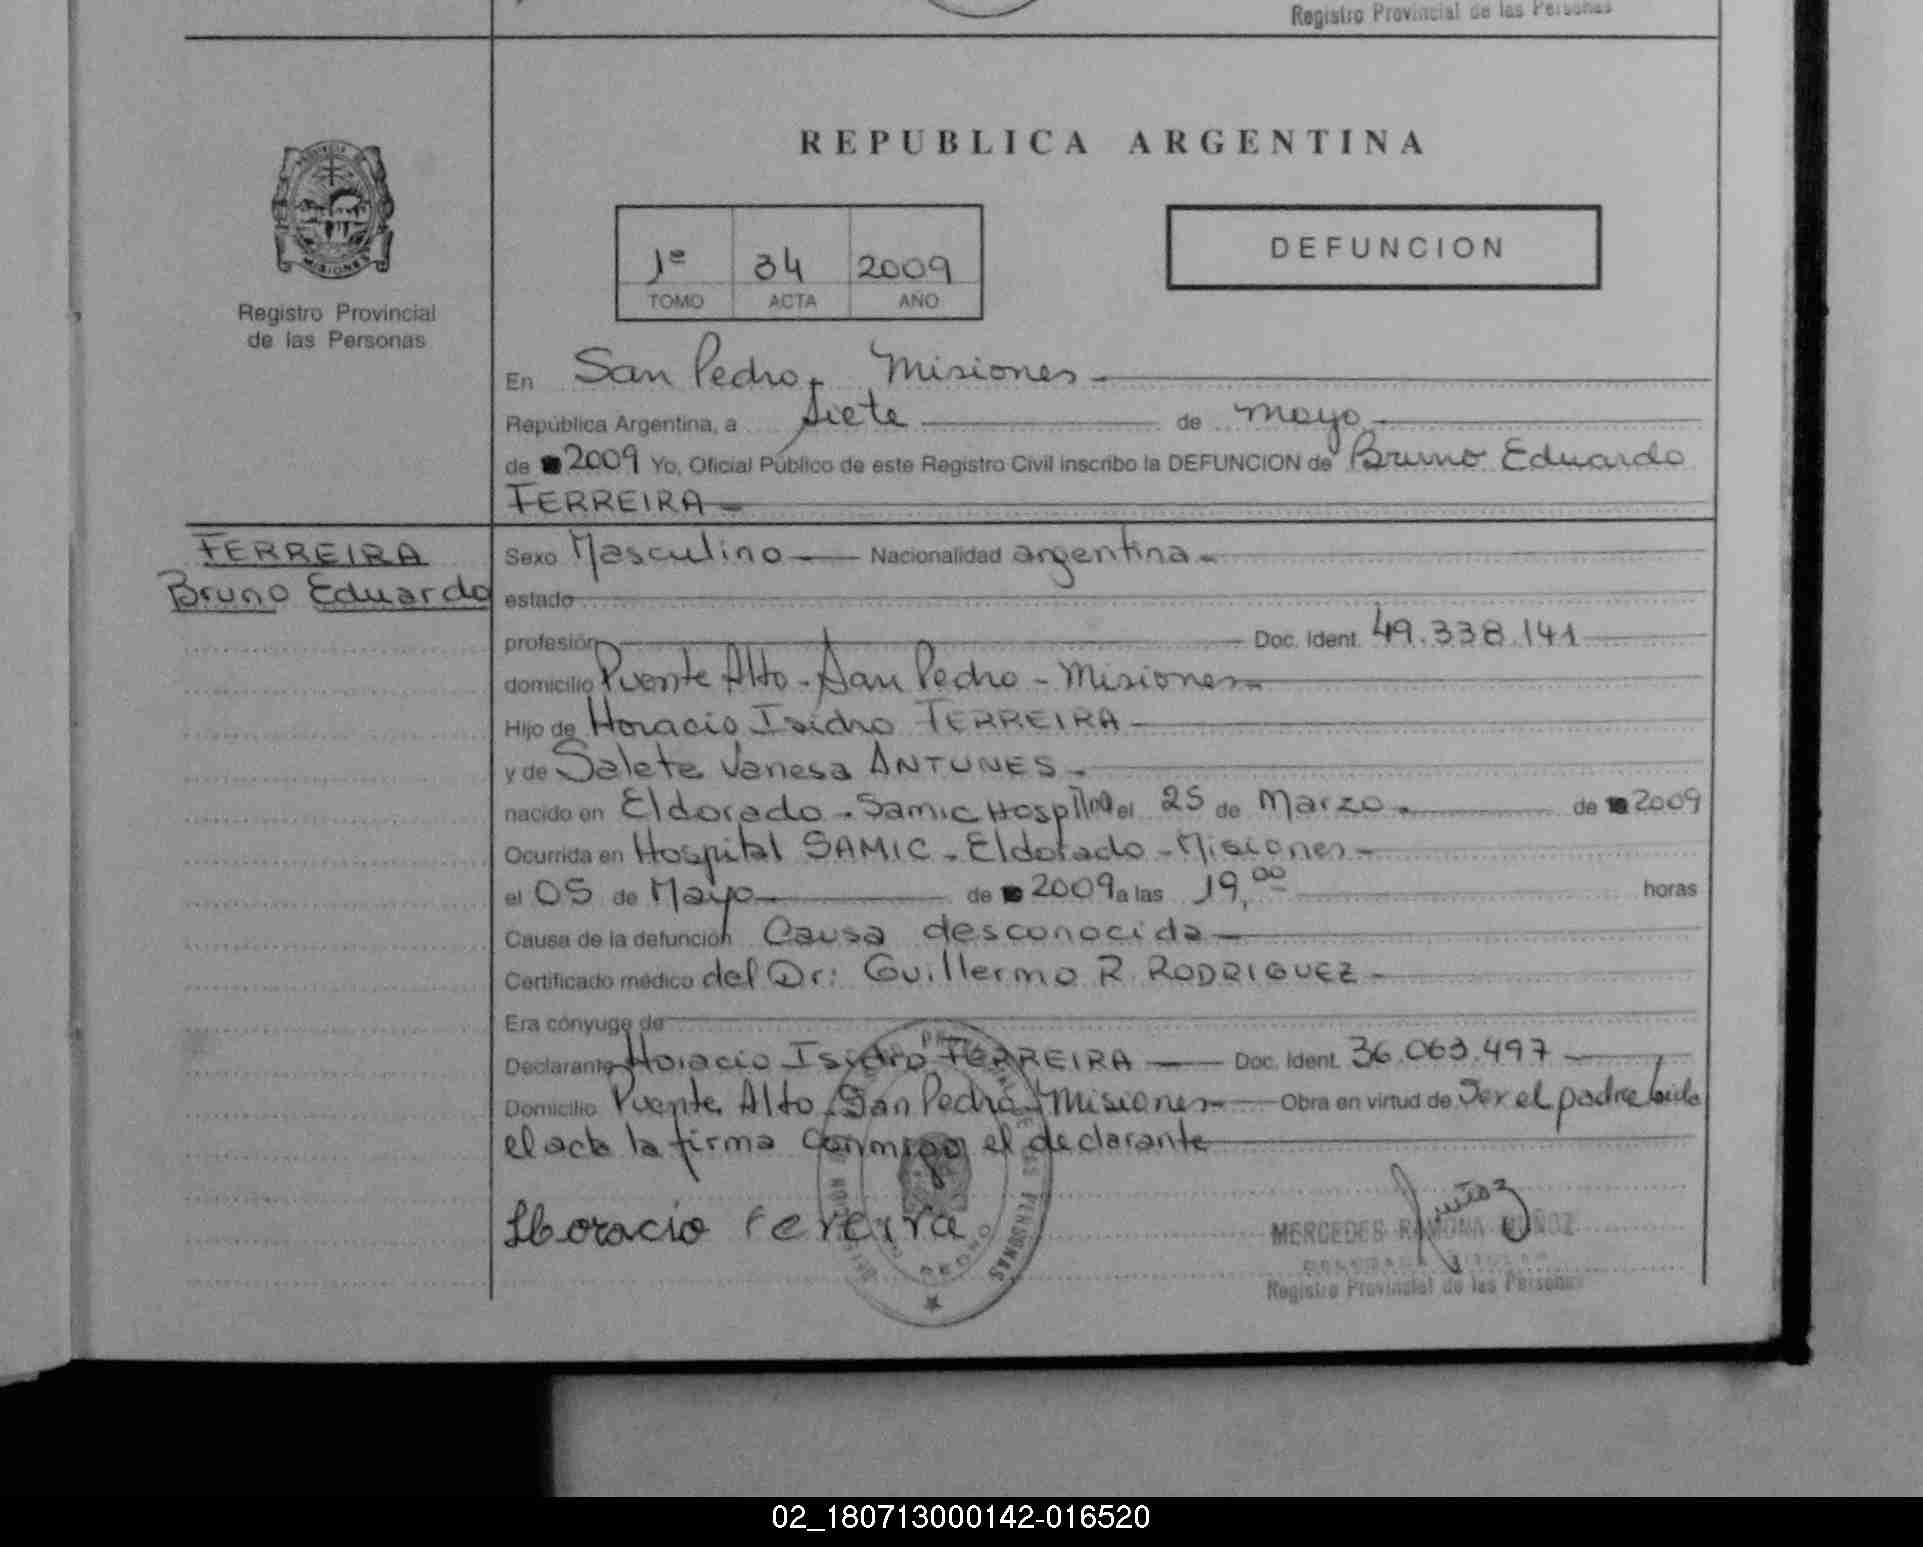 Registro Provincial de las Personas
REPUBLICA ARGENTINA
MISIONES
Registro Provincial
de las Personas
1º 34 2009
TOMO ACTA AÑO
DEFUNCION
En San Pedro, Misiones
República Argentina, a siete de mayo
de 2009 Yo, Oficial Público de este Registro Civil inscribo la DEFUNCION de Bruno Eduardo
FERREIRA
FERREIRA
Bruno Eduardo
Sexo Masculino Nacionalidad argentina
estado
profesión Doc. Ident. 49.338.141
domicilio Puente Alto - San Pedro - Misiones
Hijo de Horacio Isidro FERREIRA
y de Salete Vanesa ANTUNES
nacido en Eldorado - Samic el 25 de Marzo de 2009
Ocurrida en Hospital SAMIC - Eldorado - Misiones
el 05 de Mayo de 2009 a las 19,00 horas
Causa de la defunción Causa desconocida
Certificado médico del Dr: Guillermo R. RODRIGUEZ
Era cónyuge de
Declarante Horacio Isidro FERREIRA Doc. Ident. 36.063.497
Domicilio Puente Alto San Pedro - Misiones Obra en virtud de ser el padre leída
el acta la firma conmigo el declarante
Horacio Fereira
MERCEDES RAMONA MUÑOZ
Registro Provincial de las Personas
02_180713000142-016520